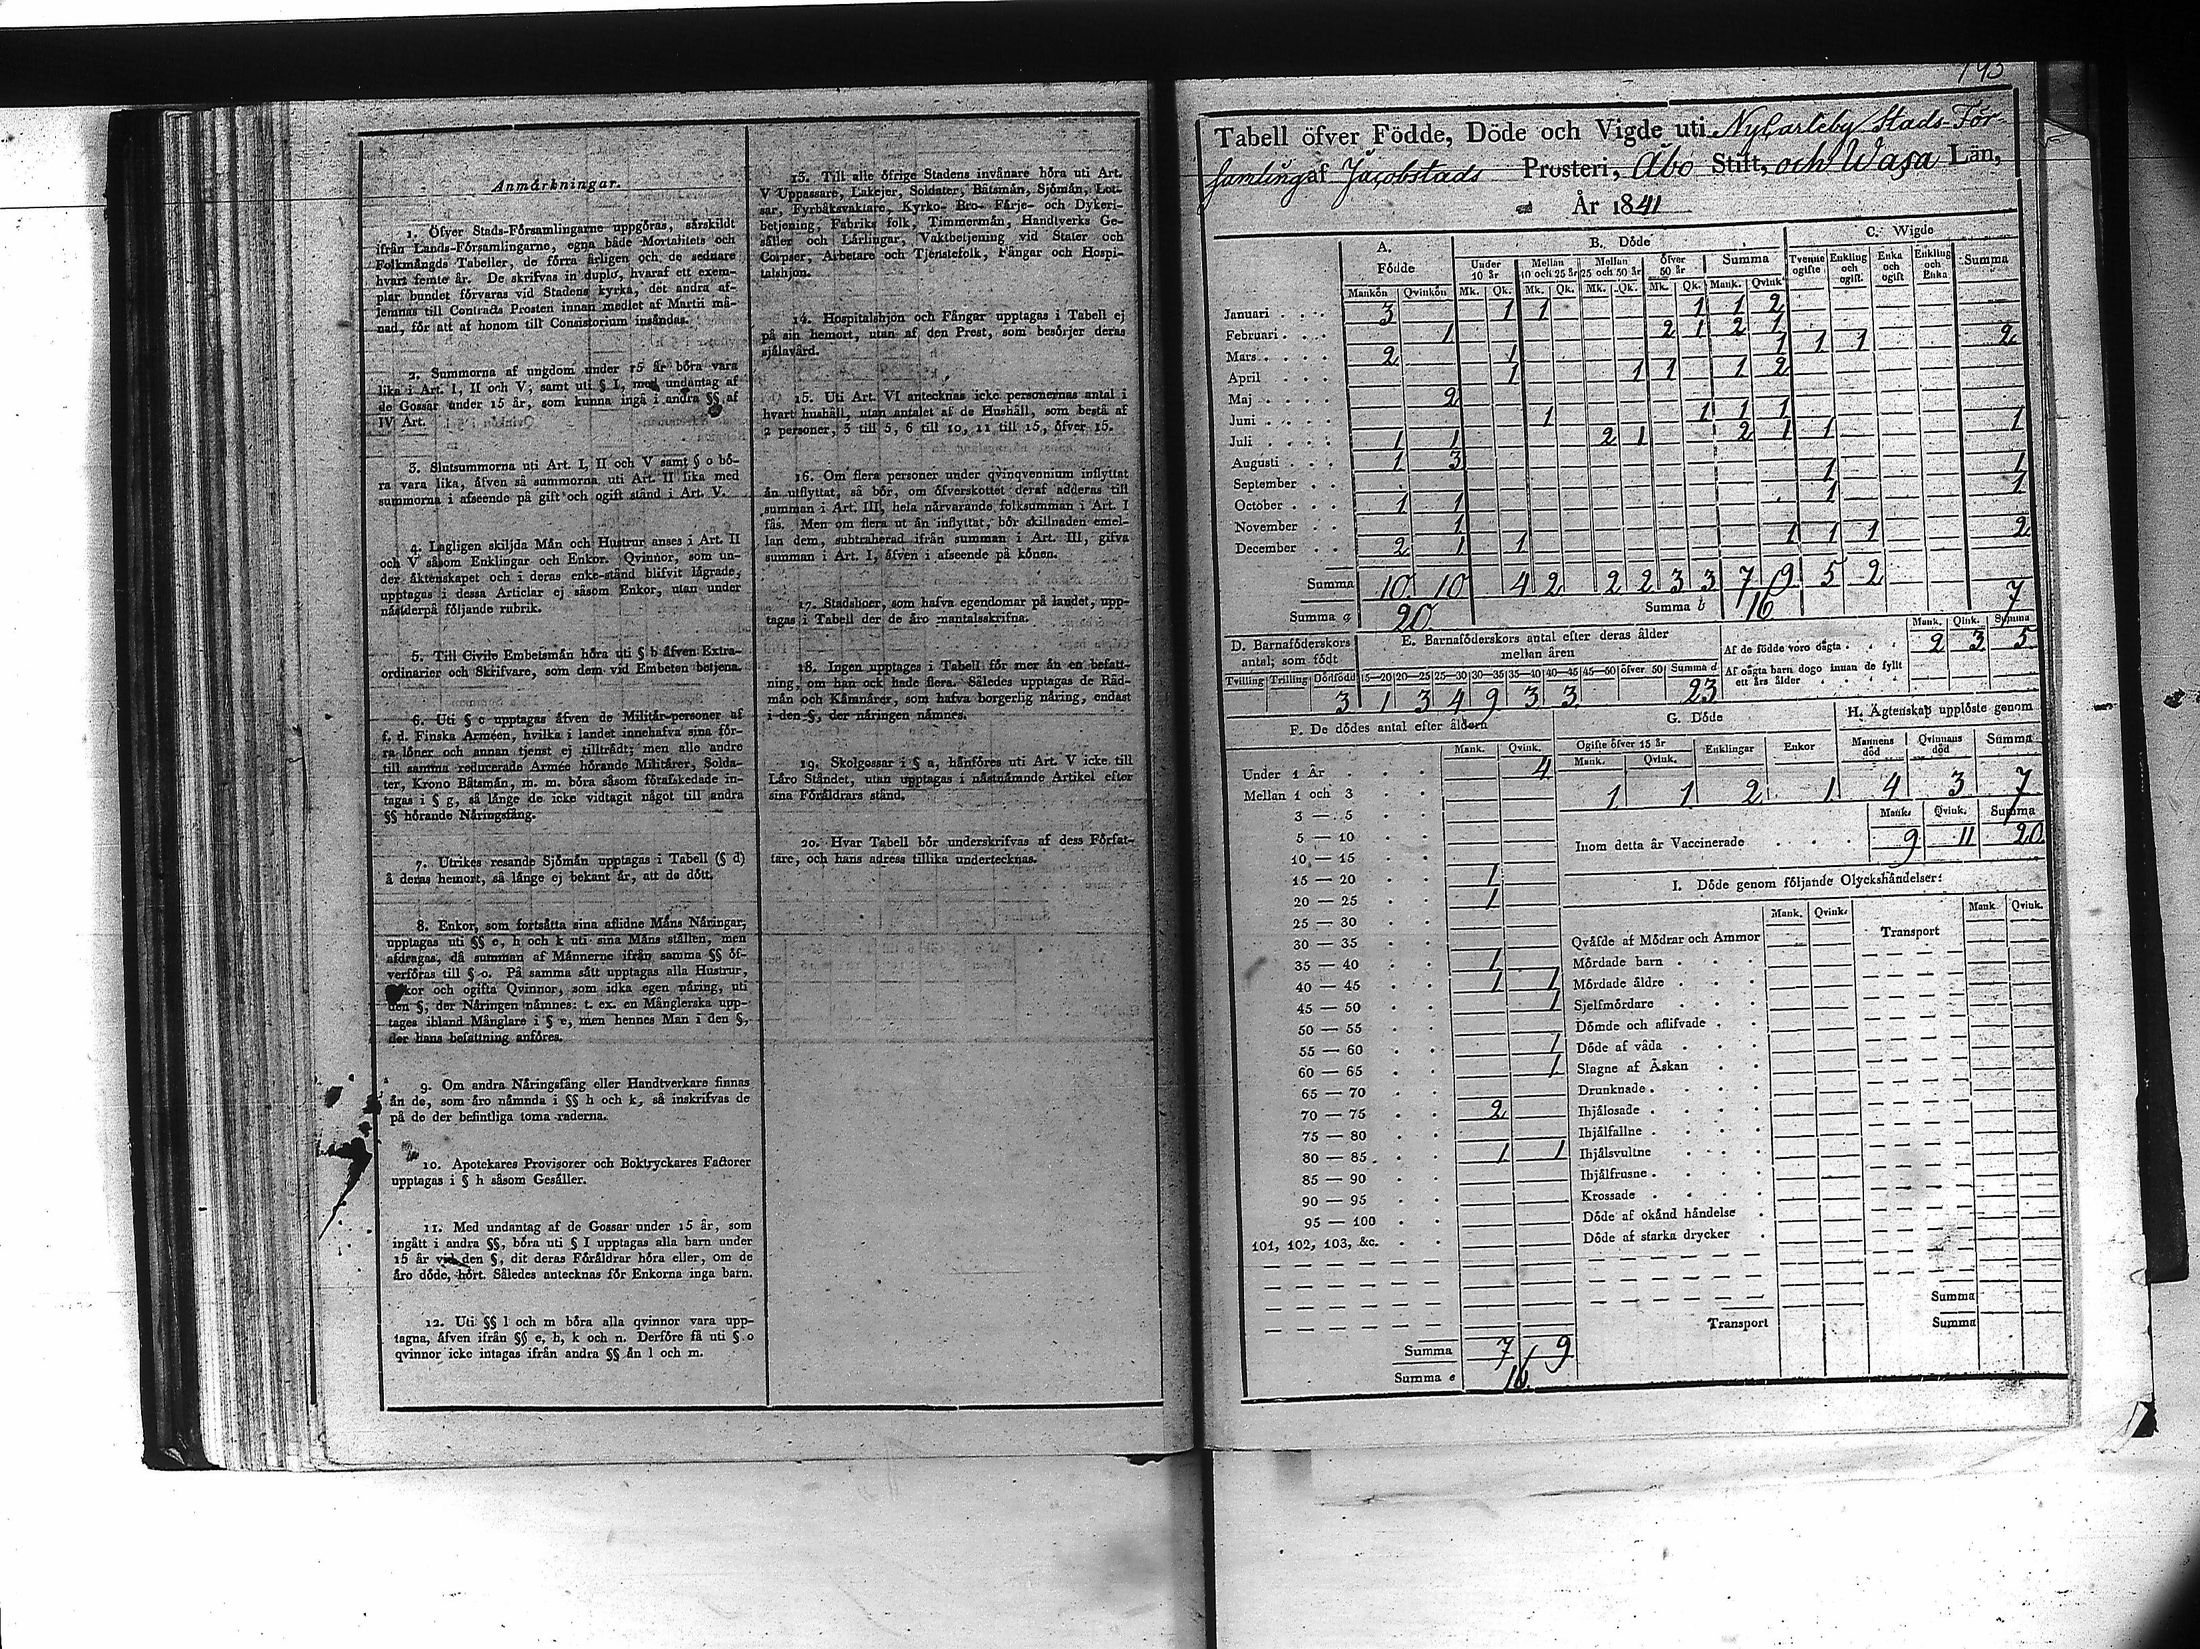 Anmärkningar.
1. Öfver Stads-Församlingarne uppgöras, särskildt
ifrån Lands-Församlingarne, egna både Mortalitets och
Folkmängds Tabeller, de förra årligen och de sednare
hvart femte år. De skrifvas in duplo, hvaraf ett exem-
plar bundet förvaras vid Stadens kyrka, det andra af-
lemnas till Contracts Prosten innan medlet af Martii må-
nad, för att af honom till Consistorium insändas.
2. Summorna af ungdom under 15 år böra vara
lika i Art. I, II och V, samt uti § I, med undantag af
de Gossar under 15 år, som kunna ingå i andra §§ af
IV Art.
3. Slutsummorna uti Art. I, II och V samt § o bö-
ra vara lika, äfven så summorna uti Art. II lika med
summorna i afseende på gift och ogift stånd i Art. V.
4. Lagligen skiljda Män och Hustrur anses i Art. II
och V såsom Enklingar och Enkor. Qvinnor, som un-
der äktenskapet och i deras enke-stånd blifvit lägrade,
upptagas i dessa Articlar ej såsom Enkor, utan under
nästderpå följande rubrik.
5. Till Civile Embetsmän höra uti § b äfven Extra-
ordinarier och Skrifvare, som dem vid Embeten betjena.
6. Uti § c upptagas äfven de Militär-personer af
f. d. Finska Arméen, hvilka i landet innehafva sina för-
ra löner och annan tjenst ej tillträdt; men alle andre
till samma reducerade Armée hörande Militärer, Solda-
ter, Krono Båtsmän, m. m. böra såsom förafskedade in-
tagas i § g, så länge de icke vidtagit något till andra
§§ hörande Näringsfång.
7. Utrikes resande Sjömän upptagas i Tabell (§ d)
å deras hemort, så länge ej bekant är, att de dött.
8. Enkor, som fortsätta sina aflidne Mäns Näringar,
upptagas uti §§ e, h och k uti sina Mäns ställen, men
afdragas, då summan af Männerne ifrån samma §§ öf-
verföras till § o. På samma sätt upptagas alla Hustrur,
Enkor och ogifta Qvinnor, som idka egen näring, uti
den §, der Näringen nämnes: t. ex. en Månglerska upp-
tages ibland Månglare i § e, men hennes Man i den §,
der hans befattning anföres.
9. Om andra Näringsfång eller Handtverkare finnas
än de, som äro nämnda i §§ h och k, så inskrifvas de
på de der befintliga toma raderna.
10. Apotekares Provisorer och Boktryckares Factorer
upptagas i § h såsom Gesäller.
11. Med undantag af de Gossar under 15 år, som
ingått i andra §§, böra uti § I upptagas alla barn under
15 år vid den §, dit deras Föräldrar höra eller, om de
äro döde, hört. Således antecknas för Enkorna inga barn.
12. Uti §§ l och m böra alla qvinnor vara upp-
tagna, äfven ifrån §§ e, h, k och n. Derföre få uti § o
qvinnor icke intagas ifrån andra §§ än l och m.
13. Till alle öfrige Stadens invånare höra uti Art.
V Uppassare, Lakejer, Soldater, Båtsmän, Sjömän, Lot-
sar, Fyrbåksvaktare, Kyrko- Bro- Färje- och Dykeri-
betjening, Fabriks folk, Timmermän, Handtverks Ge-
säller och Lärlingar, Vaktbetjening vid Stater och
Corpser, Arbetare och Tjenstefolk, Fångar och Hospi-
talshjon.
14. Hospitalshjon och Fångar upptagas i Tabell ej
på sin hemort, utan af den Prest, som besörjer deras
själavård.
15. Uti Art. VI antecknas icke personernas antal i
hvart hushåll, utan antalet af de Hushåll, som bestå af
2 personer, 3 till 5, 6 till 10, 11 till 15, öfver 15.
16. Om flera personer under qvinqvennium inflyttat
än utflyttat, så bör, om öfverskottet deraf adderas till
summan i Art. III, hela närvarande folksumman i Art. I
fås. Men om flera ut än inflyttat, bör skillnaden emel-
lan dem, subtraherad ifrån summan i Art. III, gifva
summan i Art. I, äfven i afseende på könen.
17. Stadsboer, som hafva egendomar på landet, upp-
tagas i Tabell der de äro mantalsskrifna.
18. Ingen upptages i Tabell för mer än en befatt-
ning, om han ock hade flera. Således upptagas de Råd-
män och Kämnärer, som hafva borgerlig näring, endast
i den §, der näringen nämnes.
19. Skolgossar i § a, hänföres uti Art. V icke till
Läro Ståndet, utan upptagas i nästnämnde Artikel efter
sina Föräldrars stånd.
20. Hvar Tabell bör underskrifvas af dess Förfat-
tare, och hans adress tillika undertecknas.
193
Tabell öfver Födde, Döde och Vigde uti NyCarleby Stads-För-
samling af Jacobstads Prosteri, Åbo Stift, och Wasa Län,
År 1841
A. Födde B. Döde C. Wigde
Under 10 år Mellan 10 och 25 år Mellan 25 och 50 år öfver 50 år Summa Tvenne ogifte Enkling och ogift. Enka och ogift Enkling och Enka Summa
Mankön Qvinkön Mk. Qk. Mk. Qk. Mk. Qk. Mk. Qk. Mank. Qvink
Januari 3 1 1 1 1 2
Februari 1 2 1 2 1
Mars 2 1 1 1 1 2
April 1 1 1 1 2
Maj 2
Juni 1 1 1 1
Juli 1 1 2 1 2 1 1 1
Augusti 1 3
September 1 1
October 1 1 1 1
November 1
December 2 1 1 1 1 1 2
Summa 10 10 4 2 2 2 3 3 7 9 5 2
Summa a 20 Summa b 16 7
D. Barnaföderskors antal; som födt
Tvilling Trilling Dödfödd
3
E. Barnaföderskors antal efter deras ålder mellan åren
15—20 20—25 25—30 30—35 35—40 40—45 45—50 öfver 50 Summa d
1 3 4 9 3 3 23
Mank. Qink. Summa
Af de födde voro oägta 2 3 5
Af oägta barn dogo innan de fyllt
ett års ålder
F. De dödes antal efter åldern
Mank. Qvink.
Under 1 År 4
Mellan 1 och 3
3 — 5
5 — 10
10 — 15
15 — 20 1
20 — 25 1
25 — 30
30 — 35
35 — 40 1
40 — 45 1 1
45 — 50 1
50 — 55
55 — 60 1
60 — 65 1
65 — 70
70 — 75 2
75 — 80
80 — 85 1 1
85 — 90
90 — 95
95 — 100
101, 102, 103, &c.
Summa 7 9
Summa e 16
G. Döde
Ogifte öfver 15 år Enklingar Enkor
Mank. Qvink.
1 1 2 1
H. Ägtenskap upplöste genom
Mannens död Qvinnans död Summa
4 3 7
Mank. Qvink. Summa
Inom detta år Vaccinerade 9 11 20
I. Döde genom följande Olyckshändelser:
Mank. Qvink. Mank Qvink.
Qväfde af Mödrar och Ammor Transport
Mördade barn
Mördade äldre
Sjelfmördare
Dömde och aflifvade
Döde af våda
Slagne af Åskan
Drunknade
Ihjälosade
Ihjälfallne
Ihjälsvultne
Ihjälfrusne
Krossade
Döde af okänd händelse
Döde af starka drycker
Summa
Transport Summa